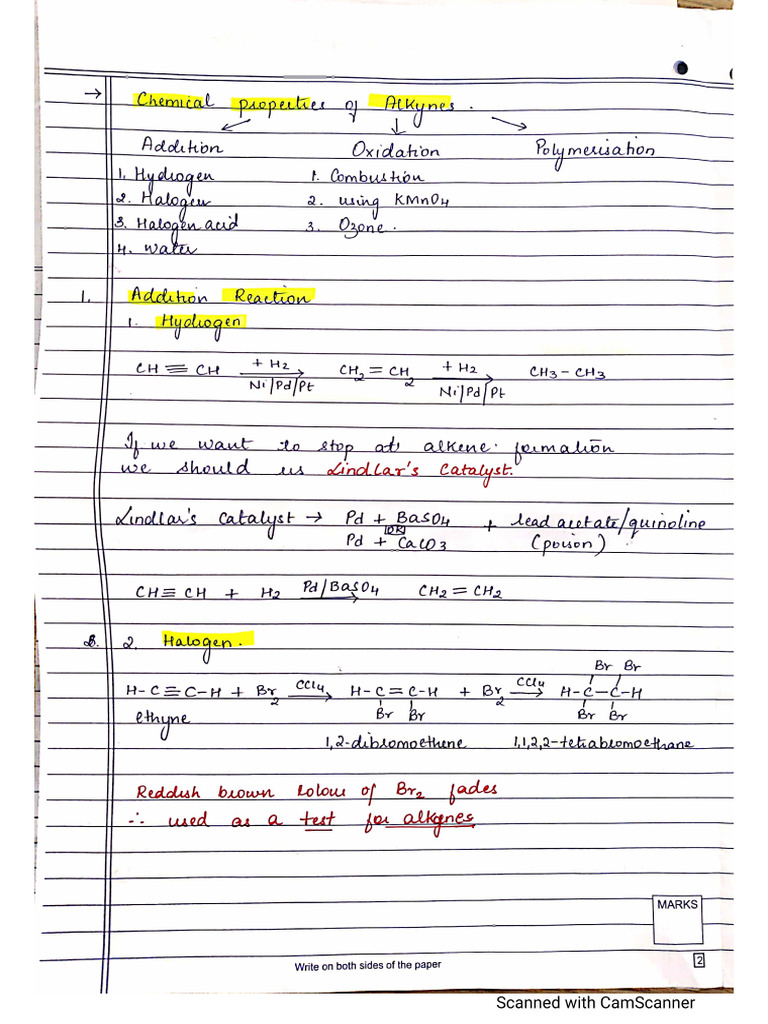 → Chemical properties of Alkynes.
↙ ↓ ↘
Addition Oxidation Polymerisation
1. Hydrogen 1. Combustion
2. Halogen 2. using KMnO4
3. Halogen acid 3. Ozone.
4. Water
1. Addition Reaction
1. Hydrogen
CH ≡ CH + H2 / Ni/Pd/Pt → CH2 = CH2 + H2 / Ni/Pd/Pt → CH3 - CH3
If we want to stop at alkene formation
we should us Lindlar's Catalyst.
Lindlar's Catalyst → Pd + BaSO4 + lead acetate/quinoline
OR
Pd + CaCO3 (poison)
CH ≡ CH + H2 Pd/BaSO4 → CH2 = CH2
2. Halogen.
Br Br
H-C≡C-H + Br2 CCl4 → H-C=C-H + Br2 CCl4 → H-C-C-H
Br Br Br Br
ethyne
1,2-dibromoethene 1,1,2,2-tetrabromoethane
Reddish brown colour of Br2 fades
∴ used as a test for alkynes
MARKS
Write on both sides of the paper
2
Scanned with CamScanner